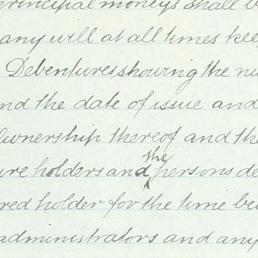 principal moneys shall b
any will at all times kee
Debentures showing the nu
nd the date of issue and
Ownership thereof and the
ure holders and the persons de
red holder for the time be
administrators and any